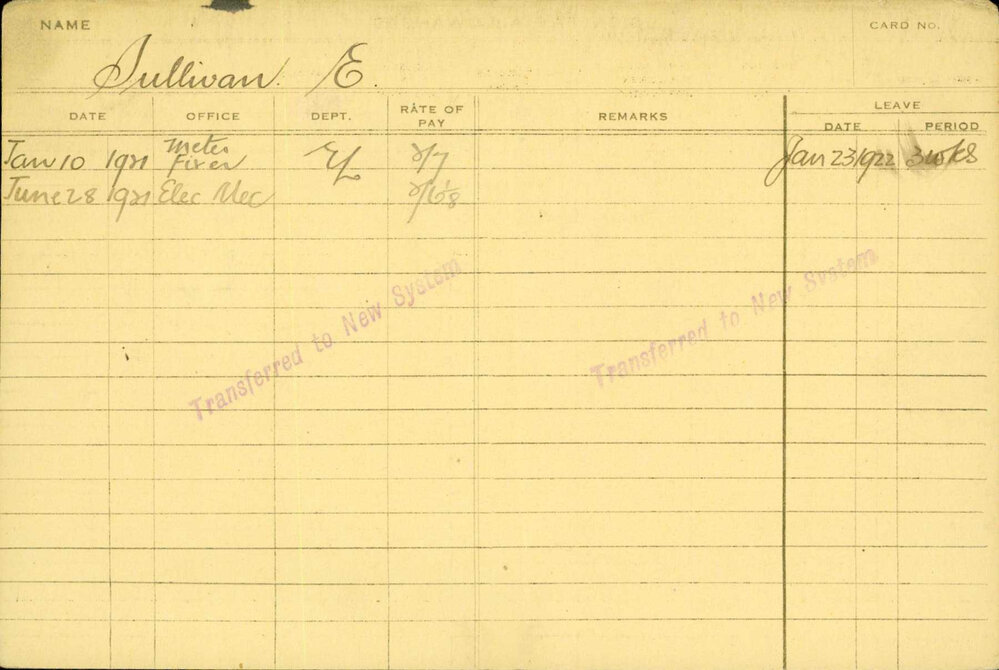 NAME
CARD NO.
Sullivan E.
DATE OFFICE DEPT. RATE OF PAY REMARKS LEAVE
DATE PERIOD
Jan 10 1921 Meter Fixer EL 2/7 Jan 23 1922 3 wks
June 28 1921 Elec Mec
Transferred to New System
Transferred to New System